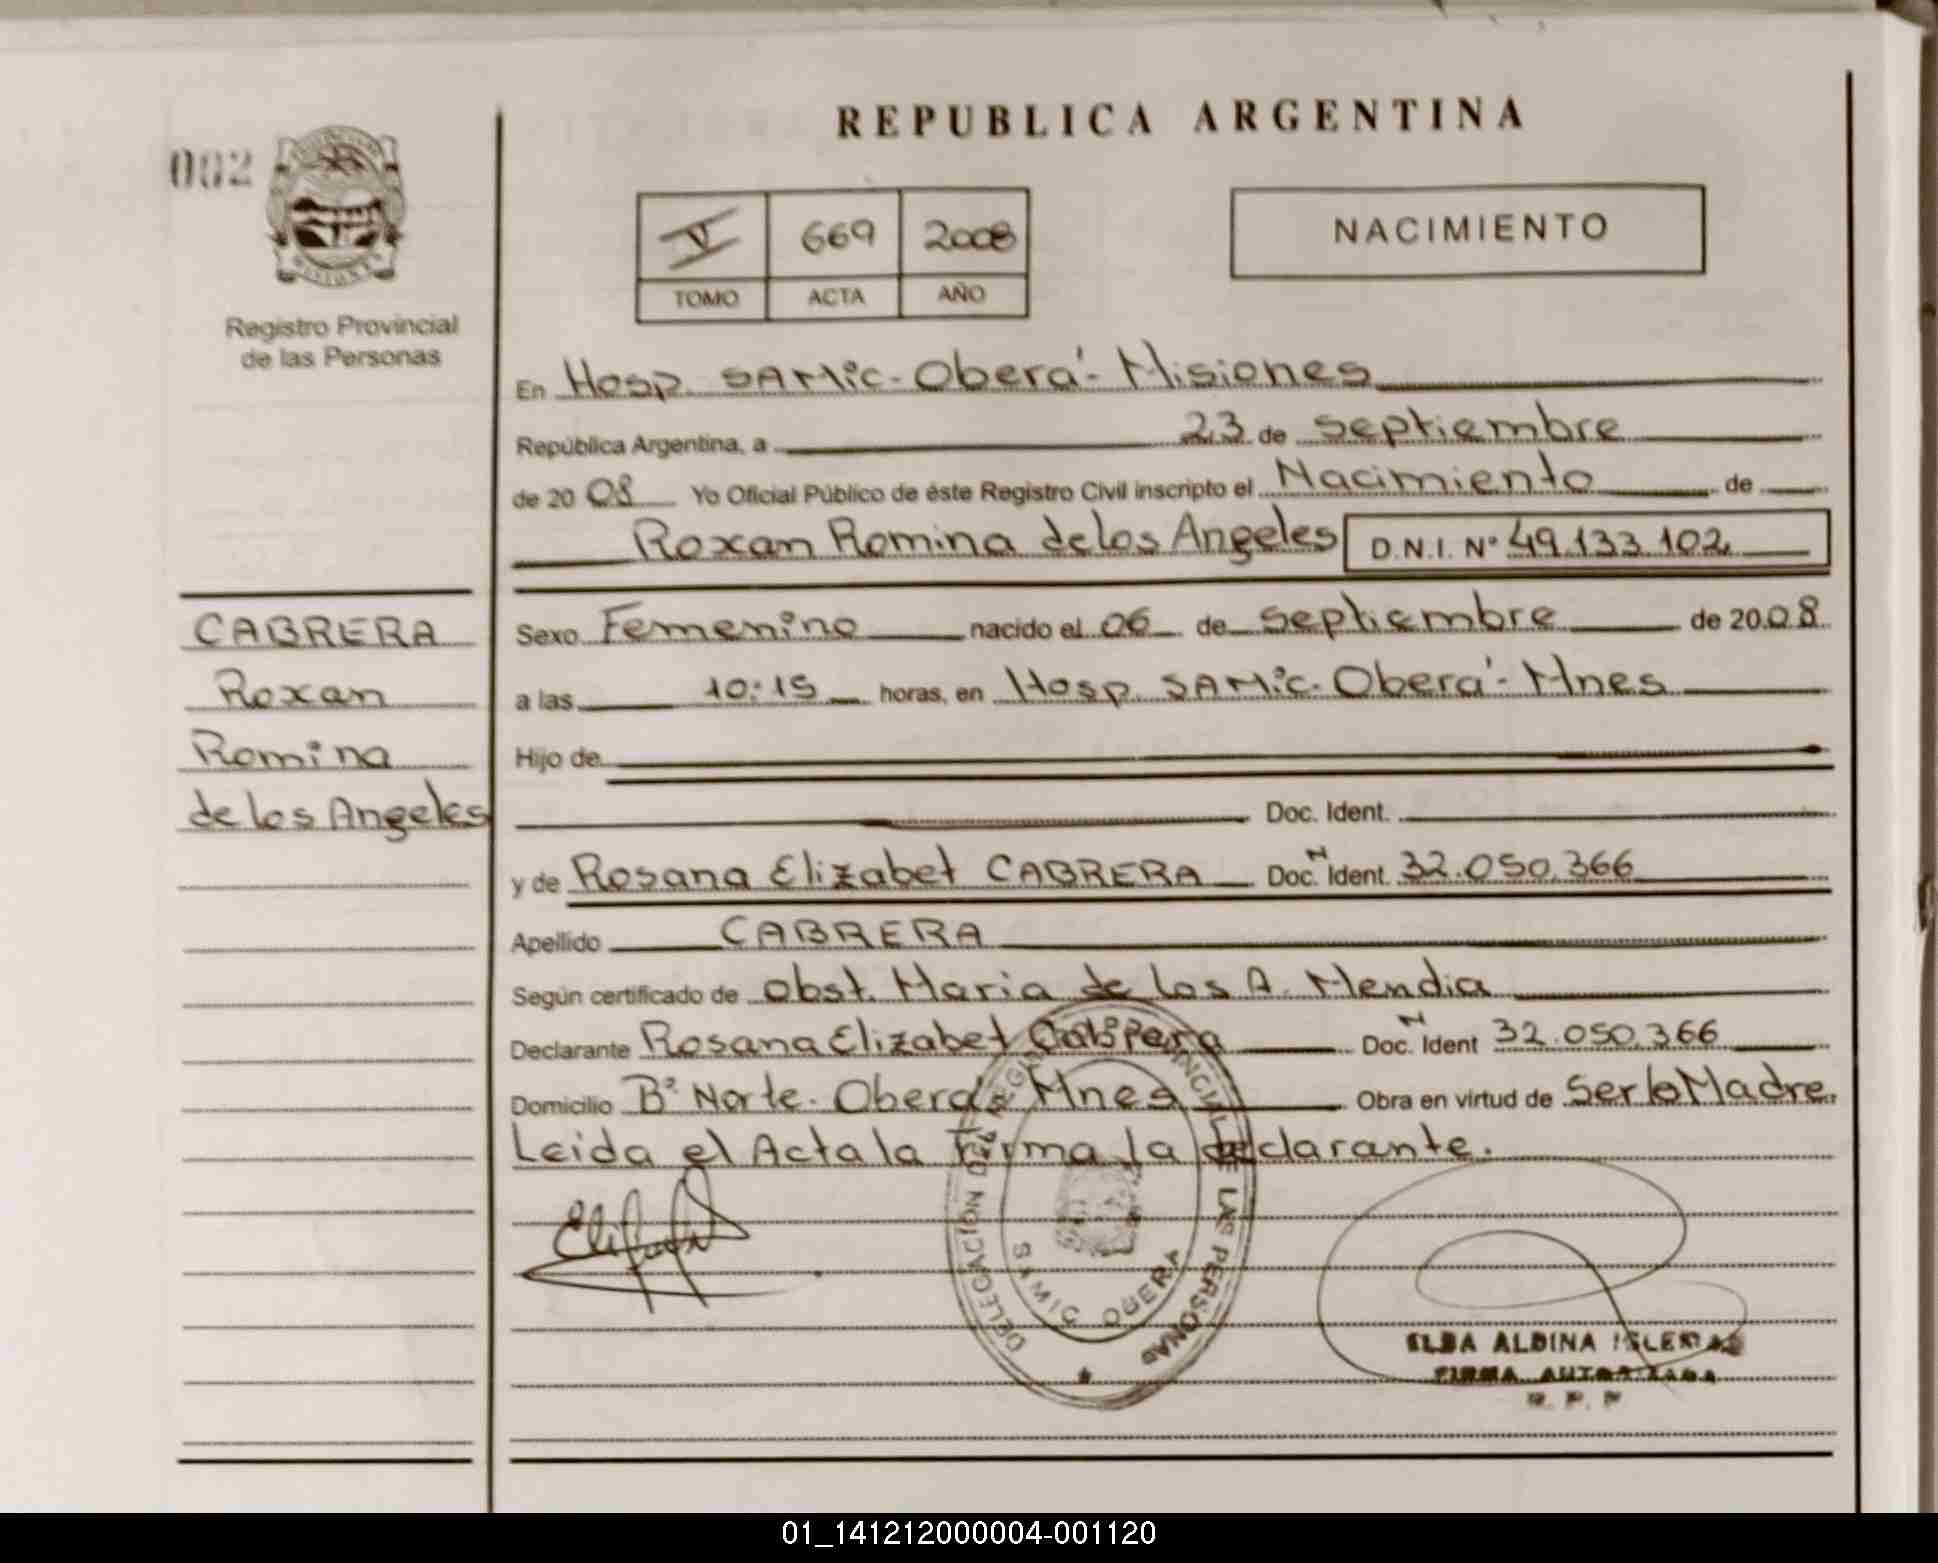 REPUBLICA ARGENTINA
002
V 669 2008
TOMO ACTA AÑO
NACIMIENTO
Registro Provincial
de las Personas
En Hosp. SAMic-Oberá-Misiones
República Argentina, a 23 de Septiembre
de 2008 Yo Oficial Público de éste Registro Civil inscripto el Nacimiento de
Roxan Romina de los Angeles D.N.I. Nº 49.133.102
CABRERA
Roxan
Romina
de los Angeles
Sexo Femenino nacido el 06 de Septiembre de 2008
a las 10:15 horas, en Hosp. SAMic-Oberá-Mnes
Hijo de
Doc. Ident.
y de Rosana Elizabet CABRERA Doc. N Ident. 32.050.366
Apellido CABRERA
Según certificado de Obst. Maria de los A. Mendia
Declarante Rosana Elizabet Doc. N Ident 32.050.366
Domicilio Bº Norte. Oberá Mnes Obra en virtud de Ser la Madre.
Leida el Acta la Firma la declarante.
DELEGACION DEL REGISTRO PROVINCIAL DE LAS PERSONAS
SAMIC OBERA
ELBA ALDINA IGLESIAS
FIRMA AUTORIZADA
R. P. P
01_141212000004-001120